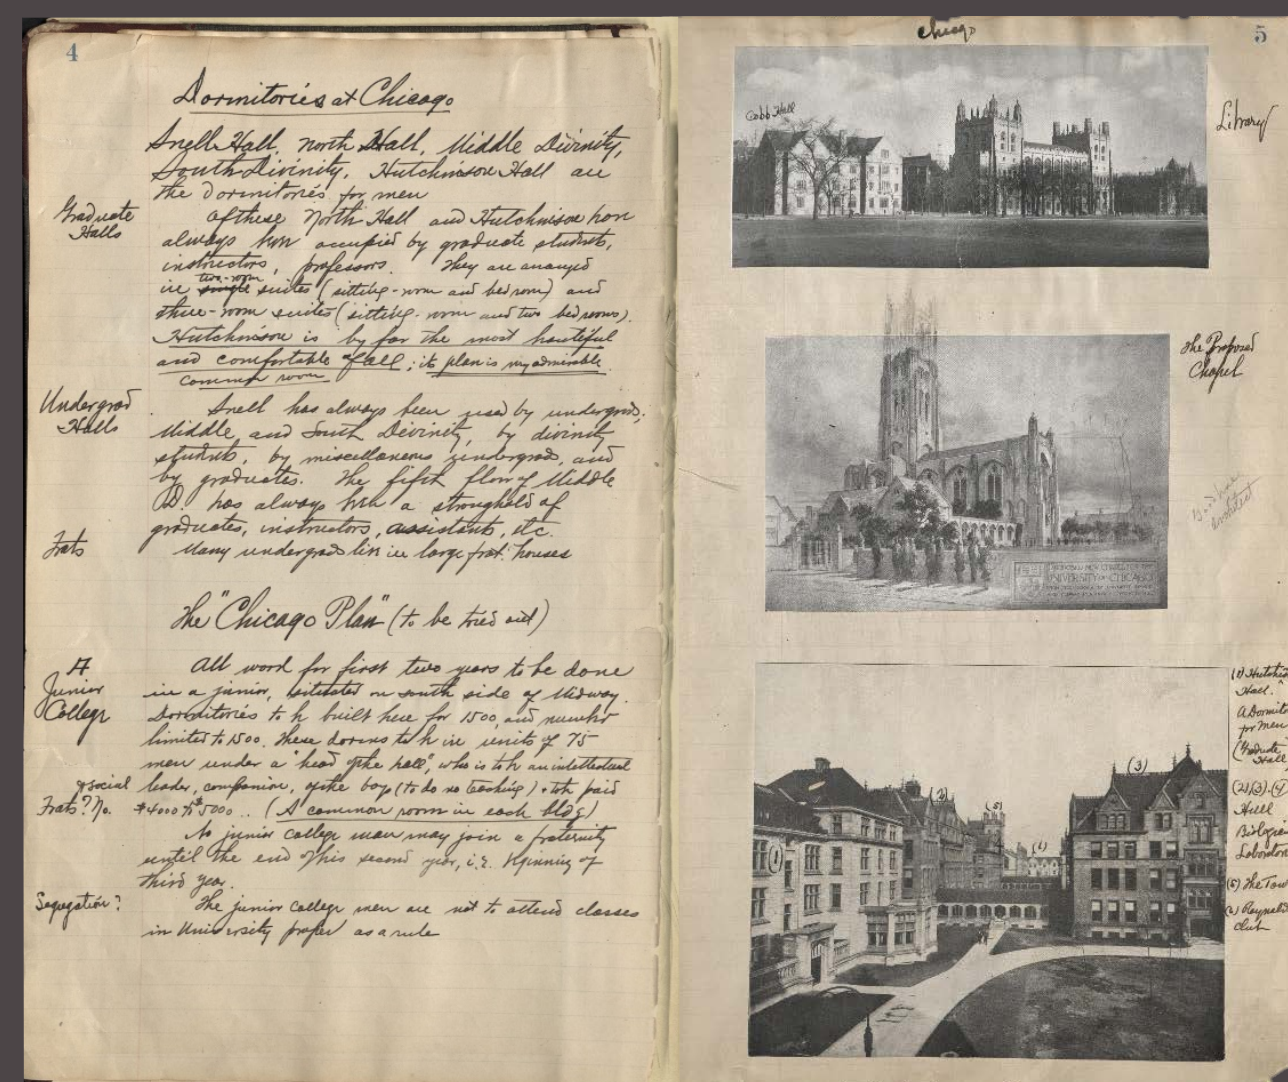 4
Dormitories at Chicago
Snell Hall, North Hall, Middle Divinity,
South Divinity, Hutchinson Hall are
the dormitories for men
Graduate
Halls
Of these North Hall and Hutchinson have
always been occupied by graduate students,
instructors, professors. They are arranged
in single two-room suites (sitting-room and bedroom) and
three-room suites (sitting-room and two bedrooms).
Hutchinson is by far the most beautiful
and comfortable of all; its plan is very admirable
common room
Undergrad
Halls
Snell has always been used by undergrads;
Middle and South Divinity, by divinity
students, by miscellaneous undergrads, and
by graduates. The fifth floor of Middle
D. has always been a stronghold of
graduates, instructors, assistants, etc.
Frats
Many undergrads live in large frat. houses
The "Chicago Plan" (to be tried out)
A
Junior
College
All word for first two years to be done
in a junior, situated on south side of Midway.
Dormitories to be built here for 1500, and number
limited to 1500. These dorms to be in units of 75
men under a "head of the hall", who is to be an intellectual
& social
leader, companion, of the boys (to do no teaching) & to be paid
Frats? No.
$4000 to $5000.. (A common room in each bldg)
No junior college man may join a fraternity
until the end of his second year, i.e. beginning of
third year.
Segregation?
The junior college men are not to attend classes
in University proper as a rule
Chicago
5
Cobb Hall
Library
The Proposed
Chapel
architect
UNIVERSITY OF CHICAGO
(1) Hutchin
Hall.
A Dormito
for men
(Graduate
Hall
(2)(3)(4)
Hull
Biologica
Laborator
(5) The Tow
(6) Reynolds
Club
(1)
(2)
(3)
(5)
(6)